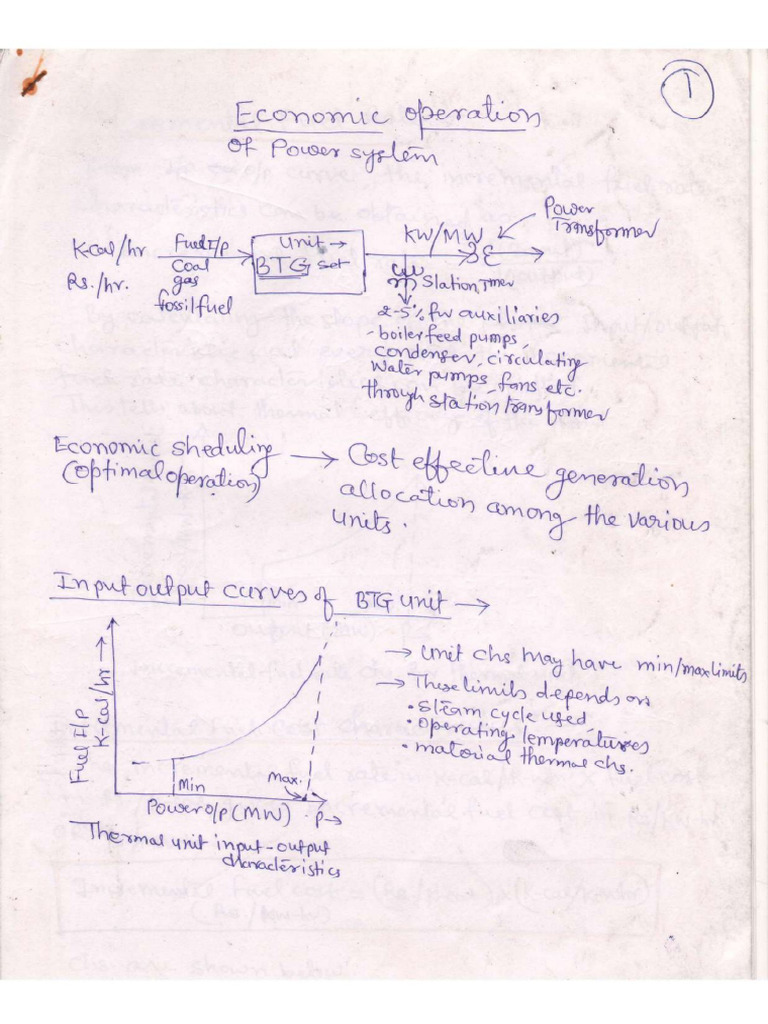 1
Economic operation
of Power system
Power
Transformer
KW/MW
K-cal/hr
Fuel I/p
Unit →
Rs./hr.
coal
BTG set
gas
fossil fuel
Station Tmer
2-5% for auxiliaries
- boiler feed pumps,
condenser, circulating
water pumps, fans etc.
through station transformer
Economic sheduling → Cost effective generation
(optimal operation)
allocation among the various
units.
Input output curves of BTG unit →
Fuel I/P
K-cal/hr →
Min
Max.
Power o/p (MW) . P→
Thermal unit input-output
characteristics
→ Unit chs may have min/max limits
→ These limits depends on
• Steam cycle used
• Operating temperatures
• material thermal chs.